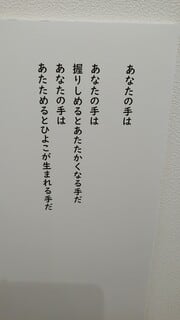 あなたの手は
あなたの手は
握りしめるとあたたかくなる手だ
あなたの手は
あたためるとひよこが生まれる手だ